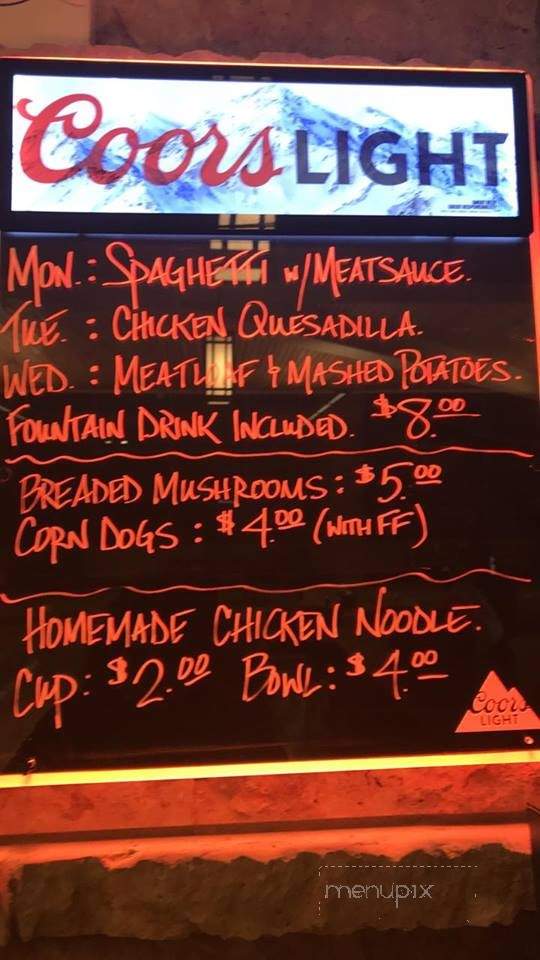 Coors LIGHT
MON.: SPAGHETTI w/MEATSAUCE.
TUE. : CHICKEN QUESADILLA.
WED. : MEATLOAF & MASHED POTATOES.
FOUNTAIN DRINK INCLUDED. $8.00
BREADED MUSHROOMS: $5.00
CORN DOGS : $4.00 (WITH FF)
HOMEMADE CHICKEN NOODLE.
CUP: $2.00 BOWL: $4.00
Coors
LIGHT
menupix